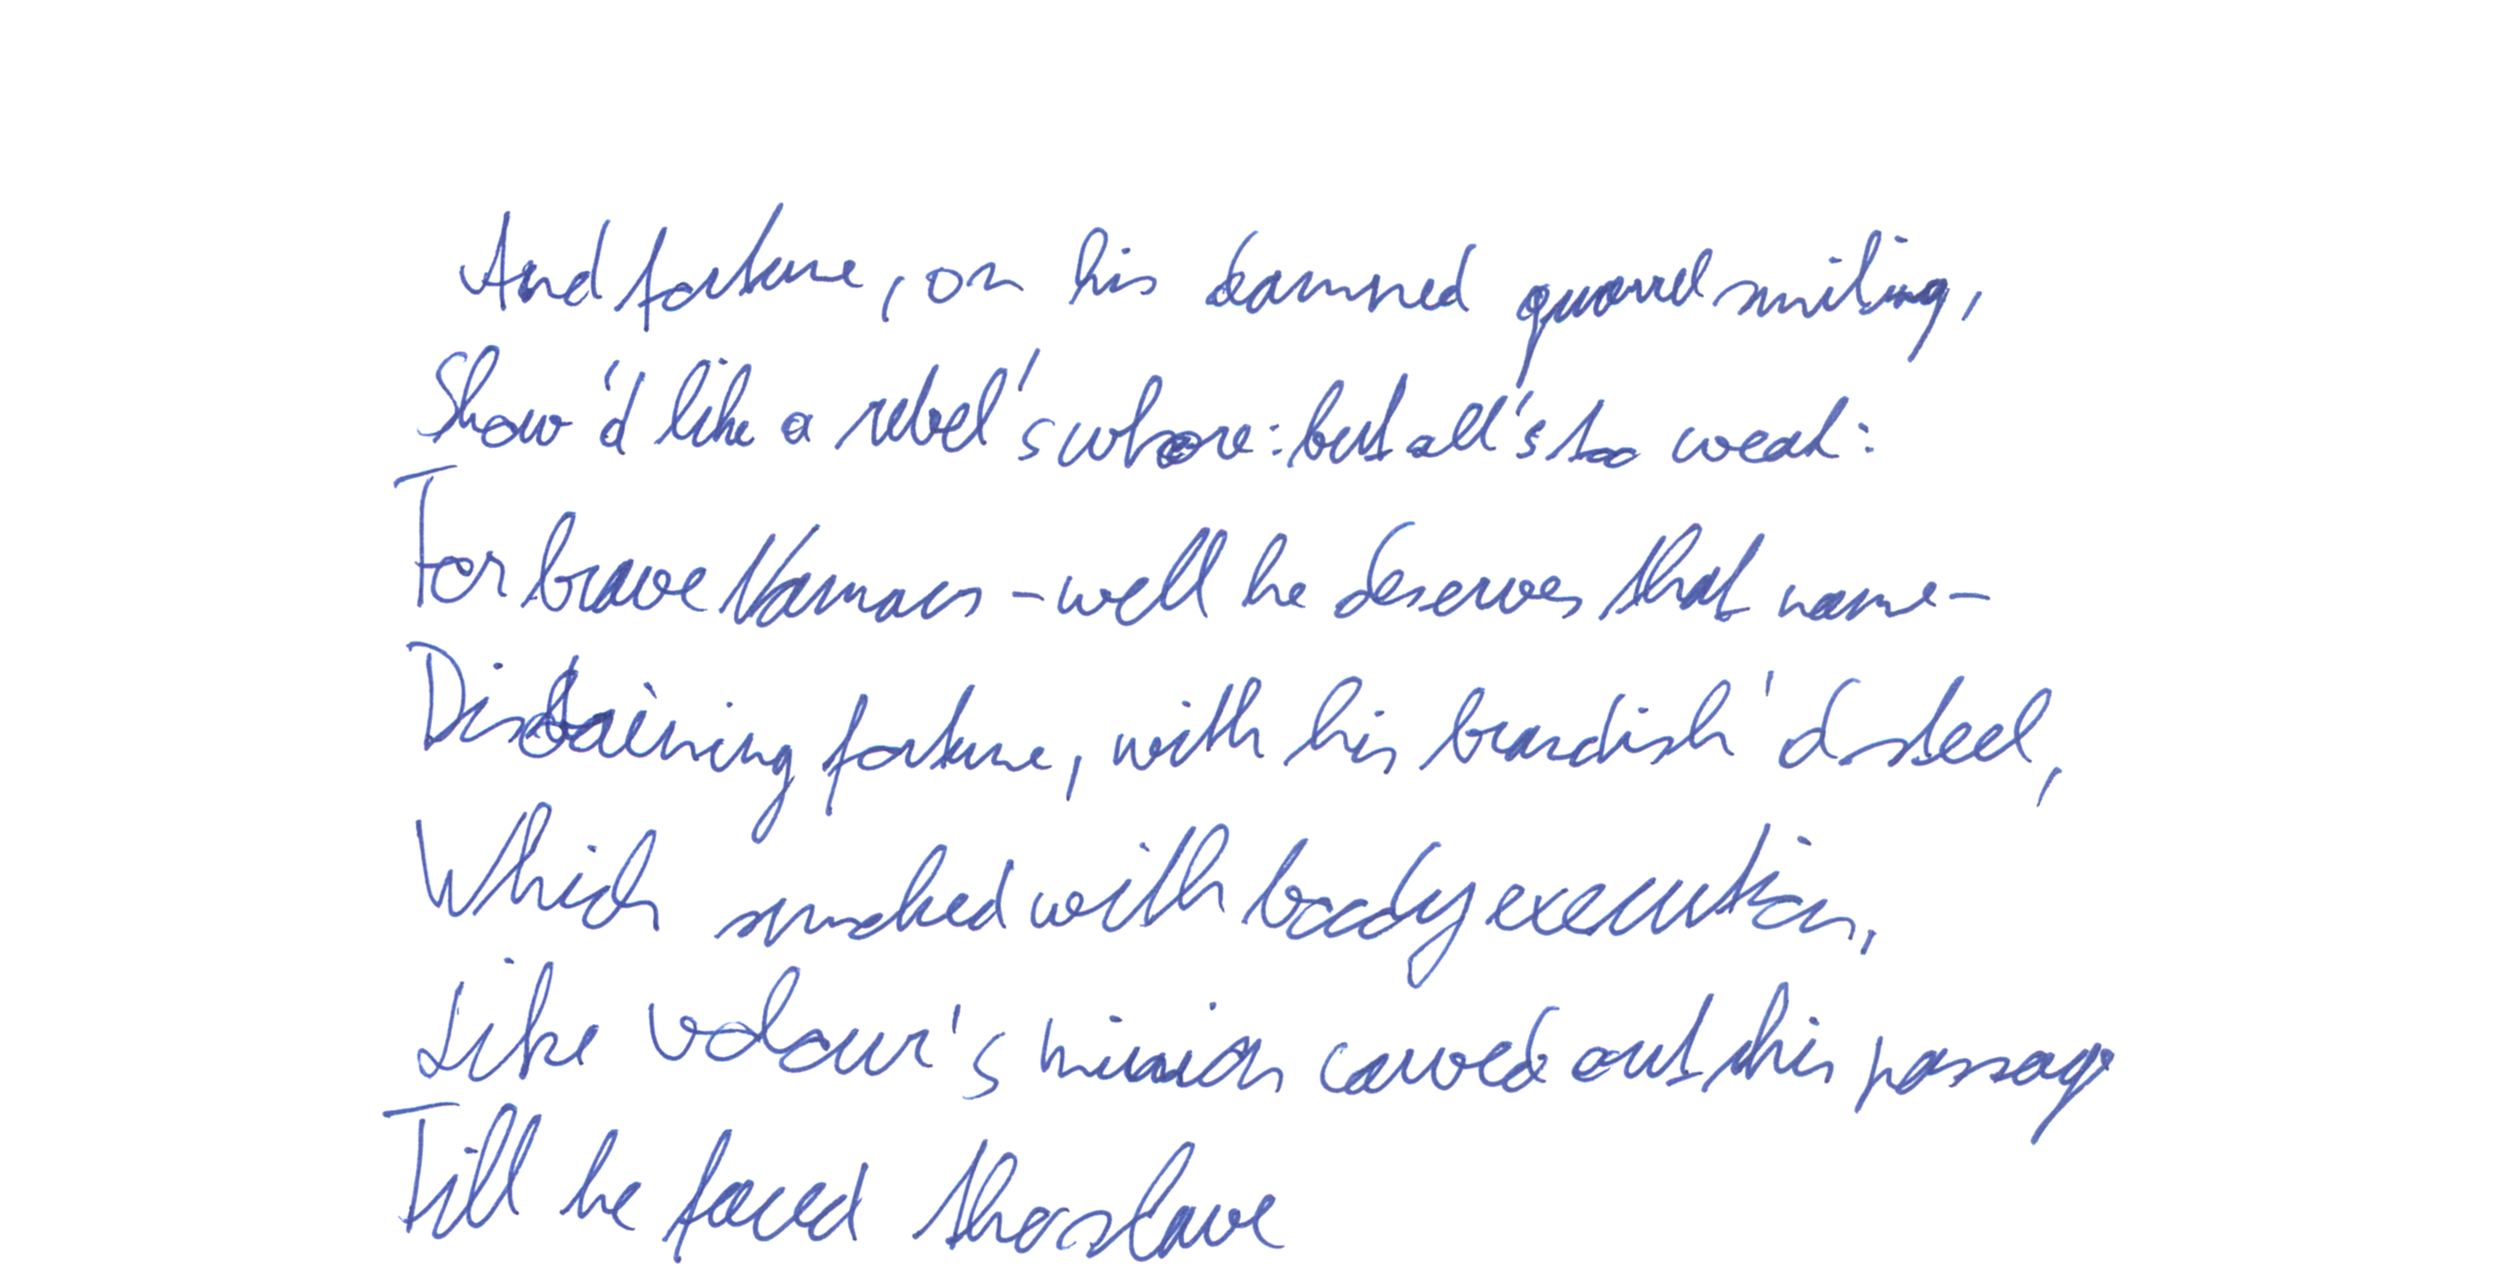 And fortune, on his damned quarrel smiling,
Show'd like a rebel's whore: but all's too weak:
For brave Macbeth - well he deserves that name-
Disdaining fortune, with his brandish'd steel,
Which smoked with bloody execution,
Like valour's minion carved out his passage
Till he faced the slave